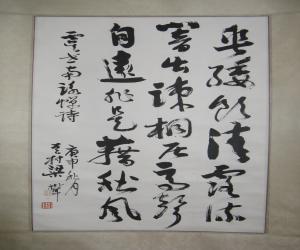 垂緌飲清露流
響出疎桐居高聲
自遠非是藉秋風
虞世南詠蟬詩
庚申秋月
村梁